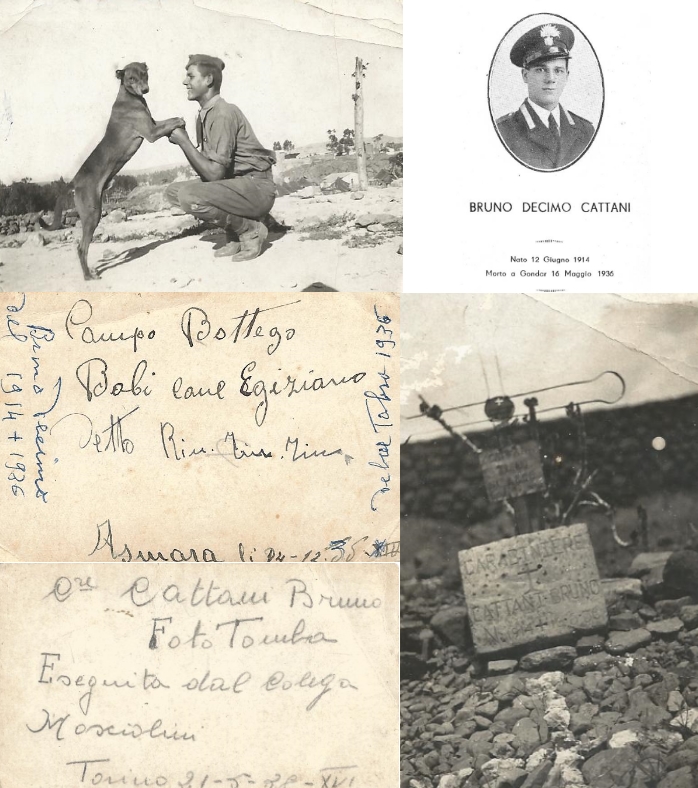 BRUNO DECIMO CATTANI
Nato 12 Giugno 1914
Morto a Gondar 16 Maggio 1936
Campo Bottego
Bobi cane Egiziano
Detto Rin. Tin. Tin.
Asmara li 24-12-35
Bruno Decimo
del 1914 + 1936
1936
Cre Cattani Bruno
Foto Tomba
Eseguita dal Colega
Mosciolini
Torino 21-5-38-XVI
CARABINIERE
CATTANI BRUNO